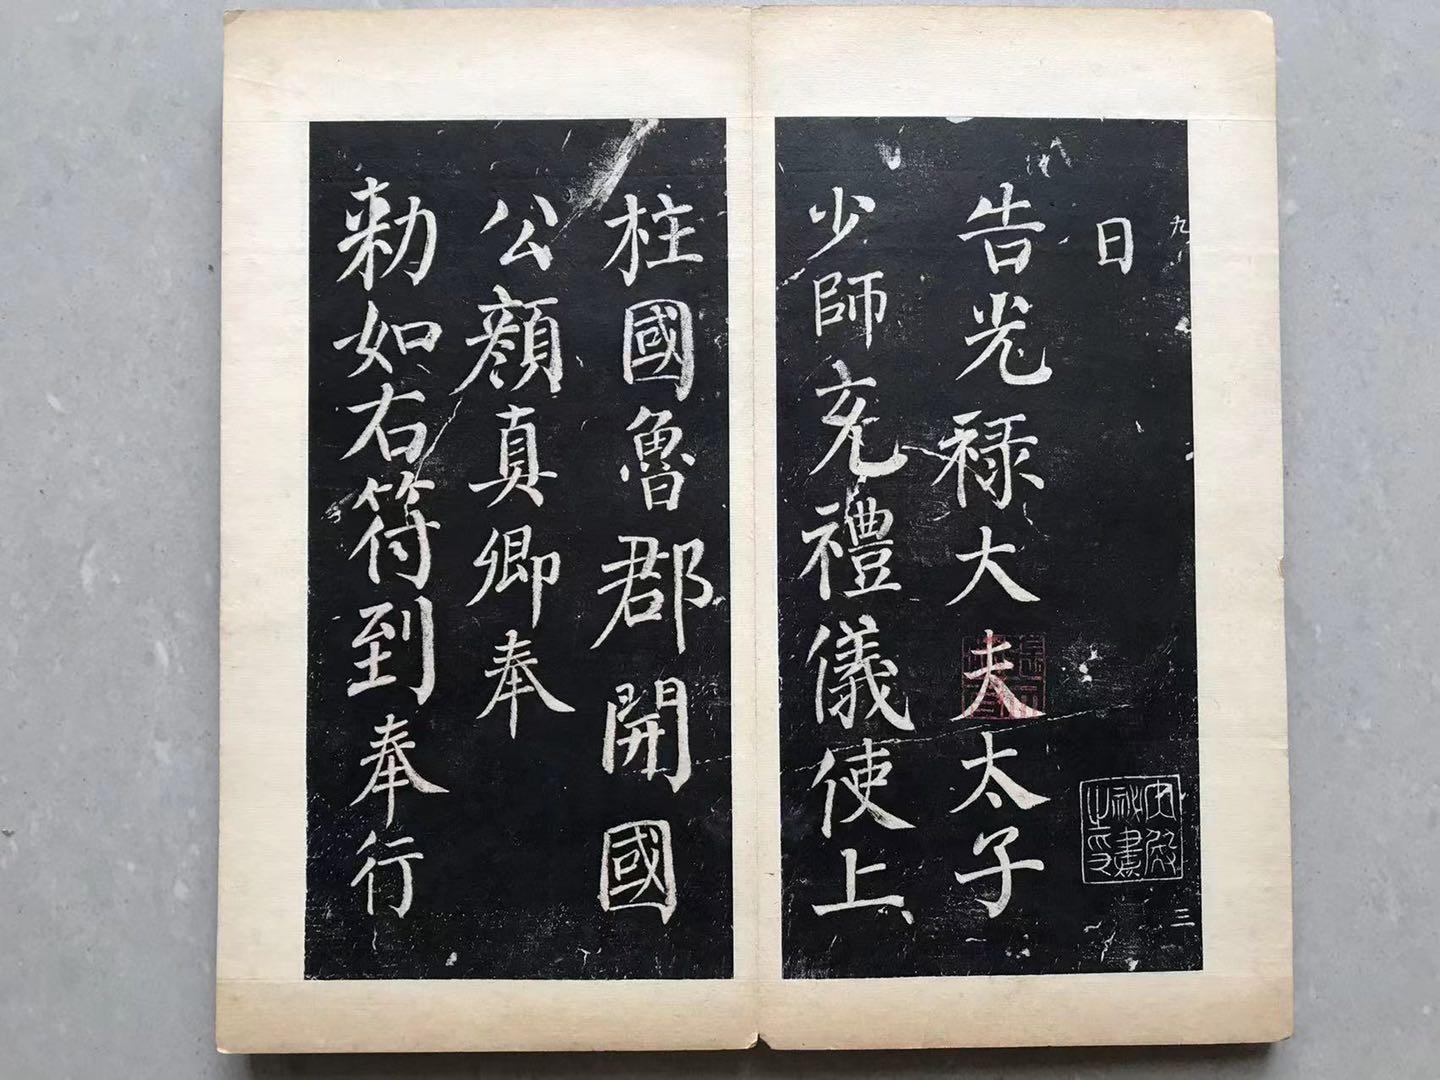 九
日
告光禄大夫太子
少師充禮儀使上
柱國魯郡開國
公顔真卿奉
勑如右符到奉行
三